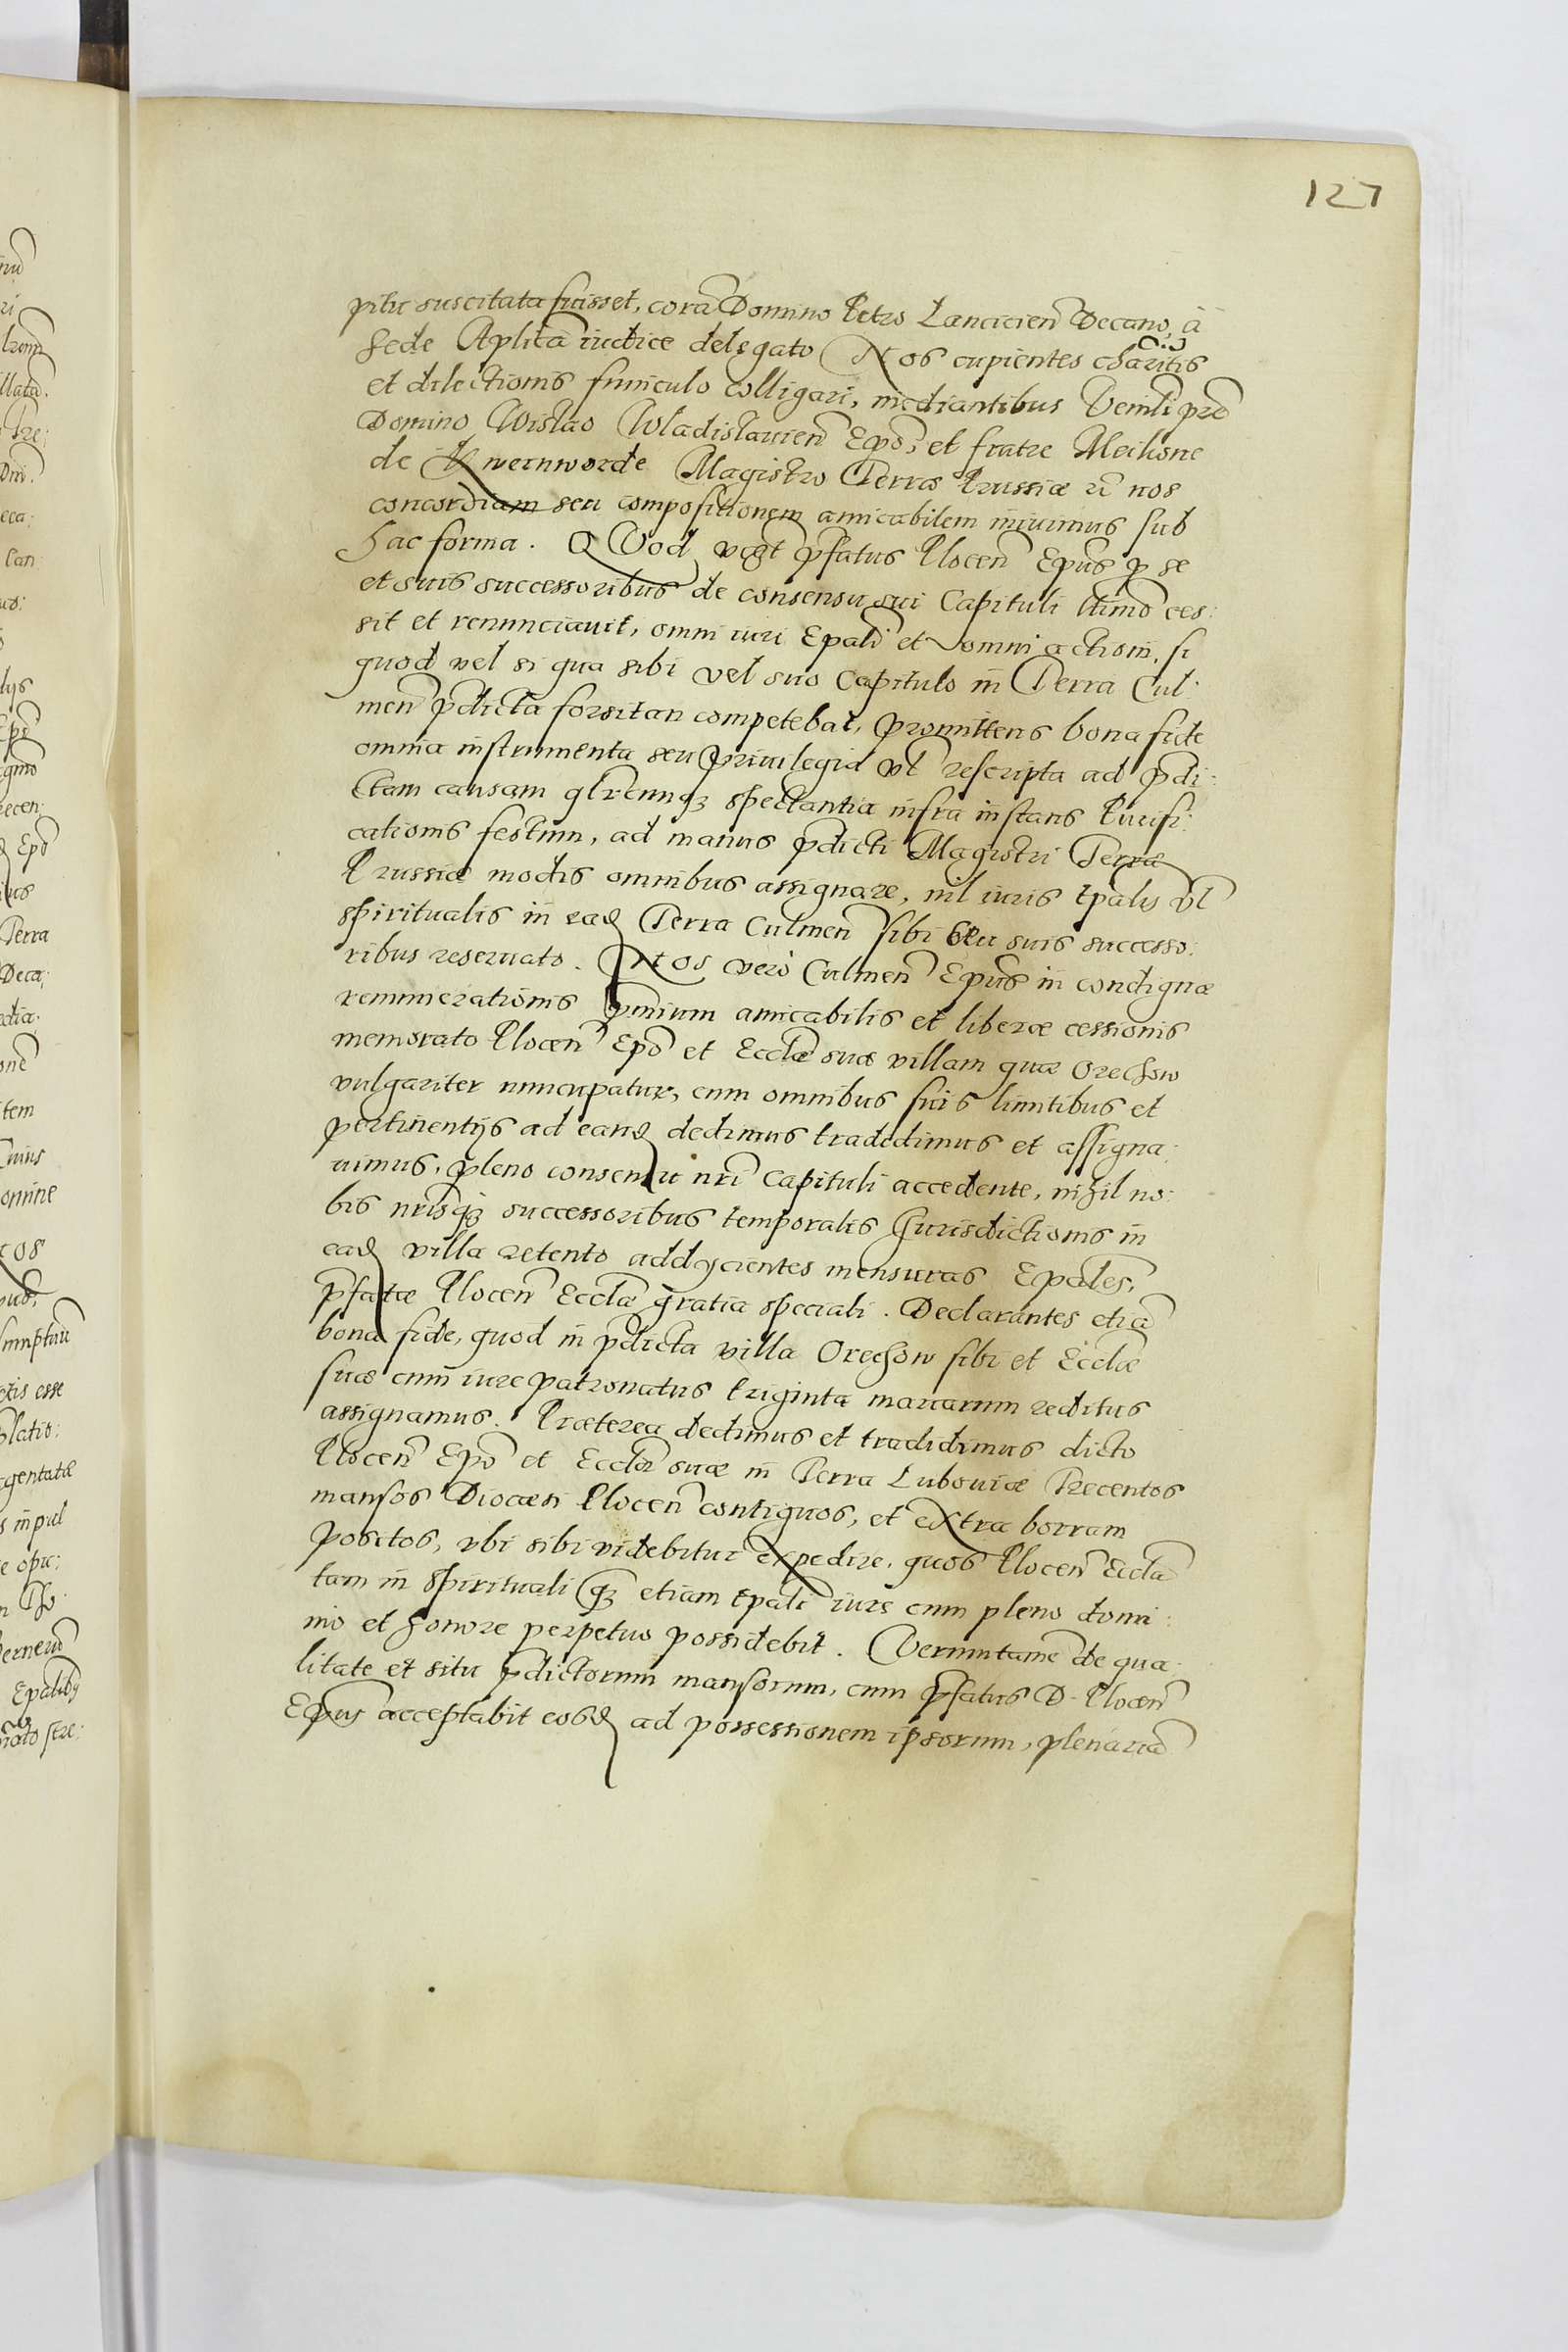 127
pitu suscitata fuisset, corā Domino Petro Lancicien̄ Decano, à
Sede Aplicā iudice delegato Nos cupientes charitis
et dilectionis funiculo colligari, mediantibus Venlī pr̄e
Domino Wislao Wladislauien̄ Ep̄o, et fratre Meihone
de Qwernworde Magistro Terræ Prussiæ n̄ nos
concordiam seu compositionem amicabilem iniuimus sub
hac forma. QVod vid̄t p̄fatus Plocen̄ Ep̄us p̱ se
et suis successoribus de consensu sui Capituli ltīmo ces:
sit et renunciauit, omni iuri Epalī et omni actioni, si
quod vel si qua sibi vel suo Capitulo in Terra Cul:
men̄ p̄dicta forsitan competebat, promittens bona fide
omnia instrumenta seu priuilegia vl̄ rescripta ad p̄di:
ctam causam qlr̄cunq3 spectantia infra instans Purifi:
cationis festum, ad manus p̄dicti Magistri Terræ
Prussiæ modis omnibus assignare, nil iuris tp̄alis vl̄
spiritualis in ead Terra Culmen̄ sibi seu suis successo:
ribus reseruato. Nos vero Culmen̄ Ep̄us in condignæ
remunerationis p̄mium amicabilis et liberæ cessionis
memorato Plocen̄ Ep̄o et Eccl̄æ suæ villam quæ Orechow
vulgariter nuncupatur, cum omnibus suis limitibus et
pertinentijs ad eand dedimus tradidimus et assigna:
uimus, pleno consensu nrī Capituli accedente, nihil no:
bis nrīsq3 successoribus temporalis Iurisdictionis in
ead villa retento addycientes mensuras Epales,
p̄fatæ Plocen̄ Eccl̄æ gratia speciali. Declarantes etiā
bona fide, quod in p̄dicta villa Orechow sibi et Eccl̄æ
suæ cum iure patronatus triginta marcarum reditus
assignamus. Præterea dedimus et tradidimus dicto
Plocen̄ Ep̄o et Eccl̄æ suæ in Terra Lubouiæ Trecentos
mansos Diocæsi Plocen̄ contiguos, et extra borram
positos, vbi sibi videbitur expedire, quos Plocen̄ Eccl̄a
tam in spirituali q̄3 etiam tp̄ali iure cum pleno domi:
nio et honore perpetuo possidebit. Veruntamē de qua:
litate et situ p̄dictorum mansorum, cum p̄fatus D. Plocen̄
Ep̄us acceptabit eosd ad possessionem ipsorum, plenariā